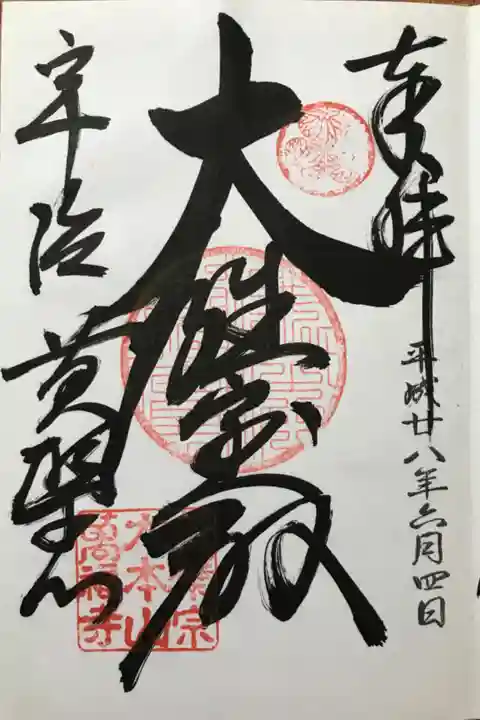 奉拝
平成廿八年六月四日
大雄宝殿
宇治 黄檗山
黄檗宗
大本山
萬福寺